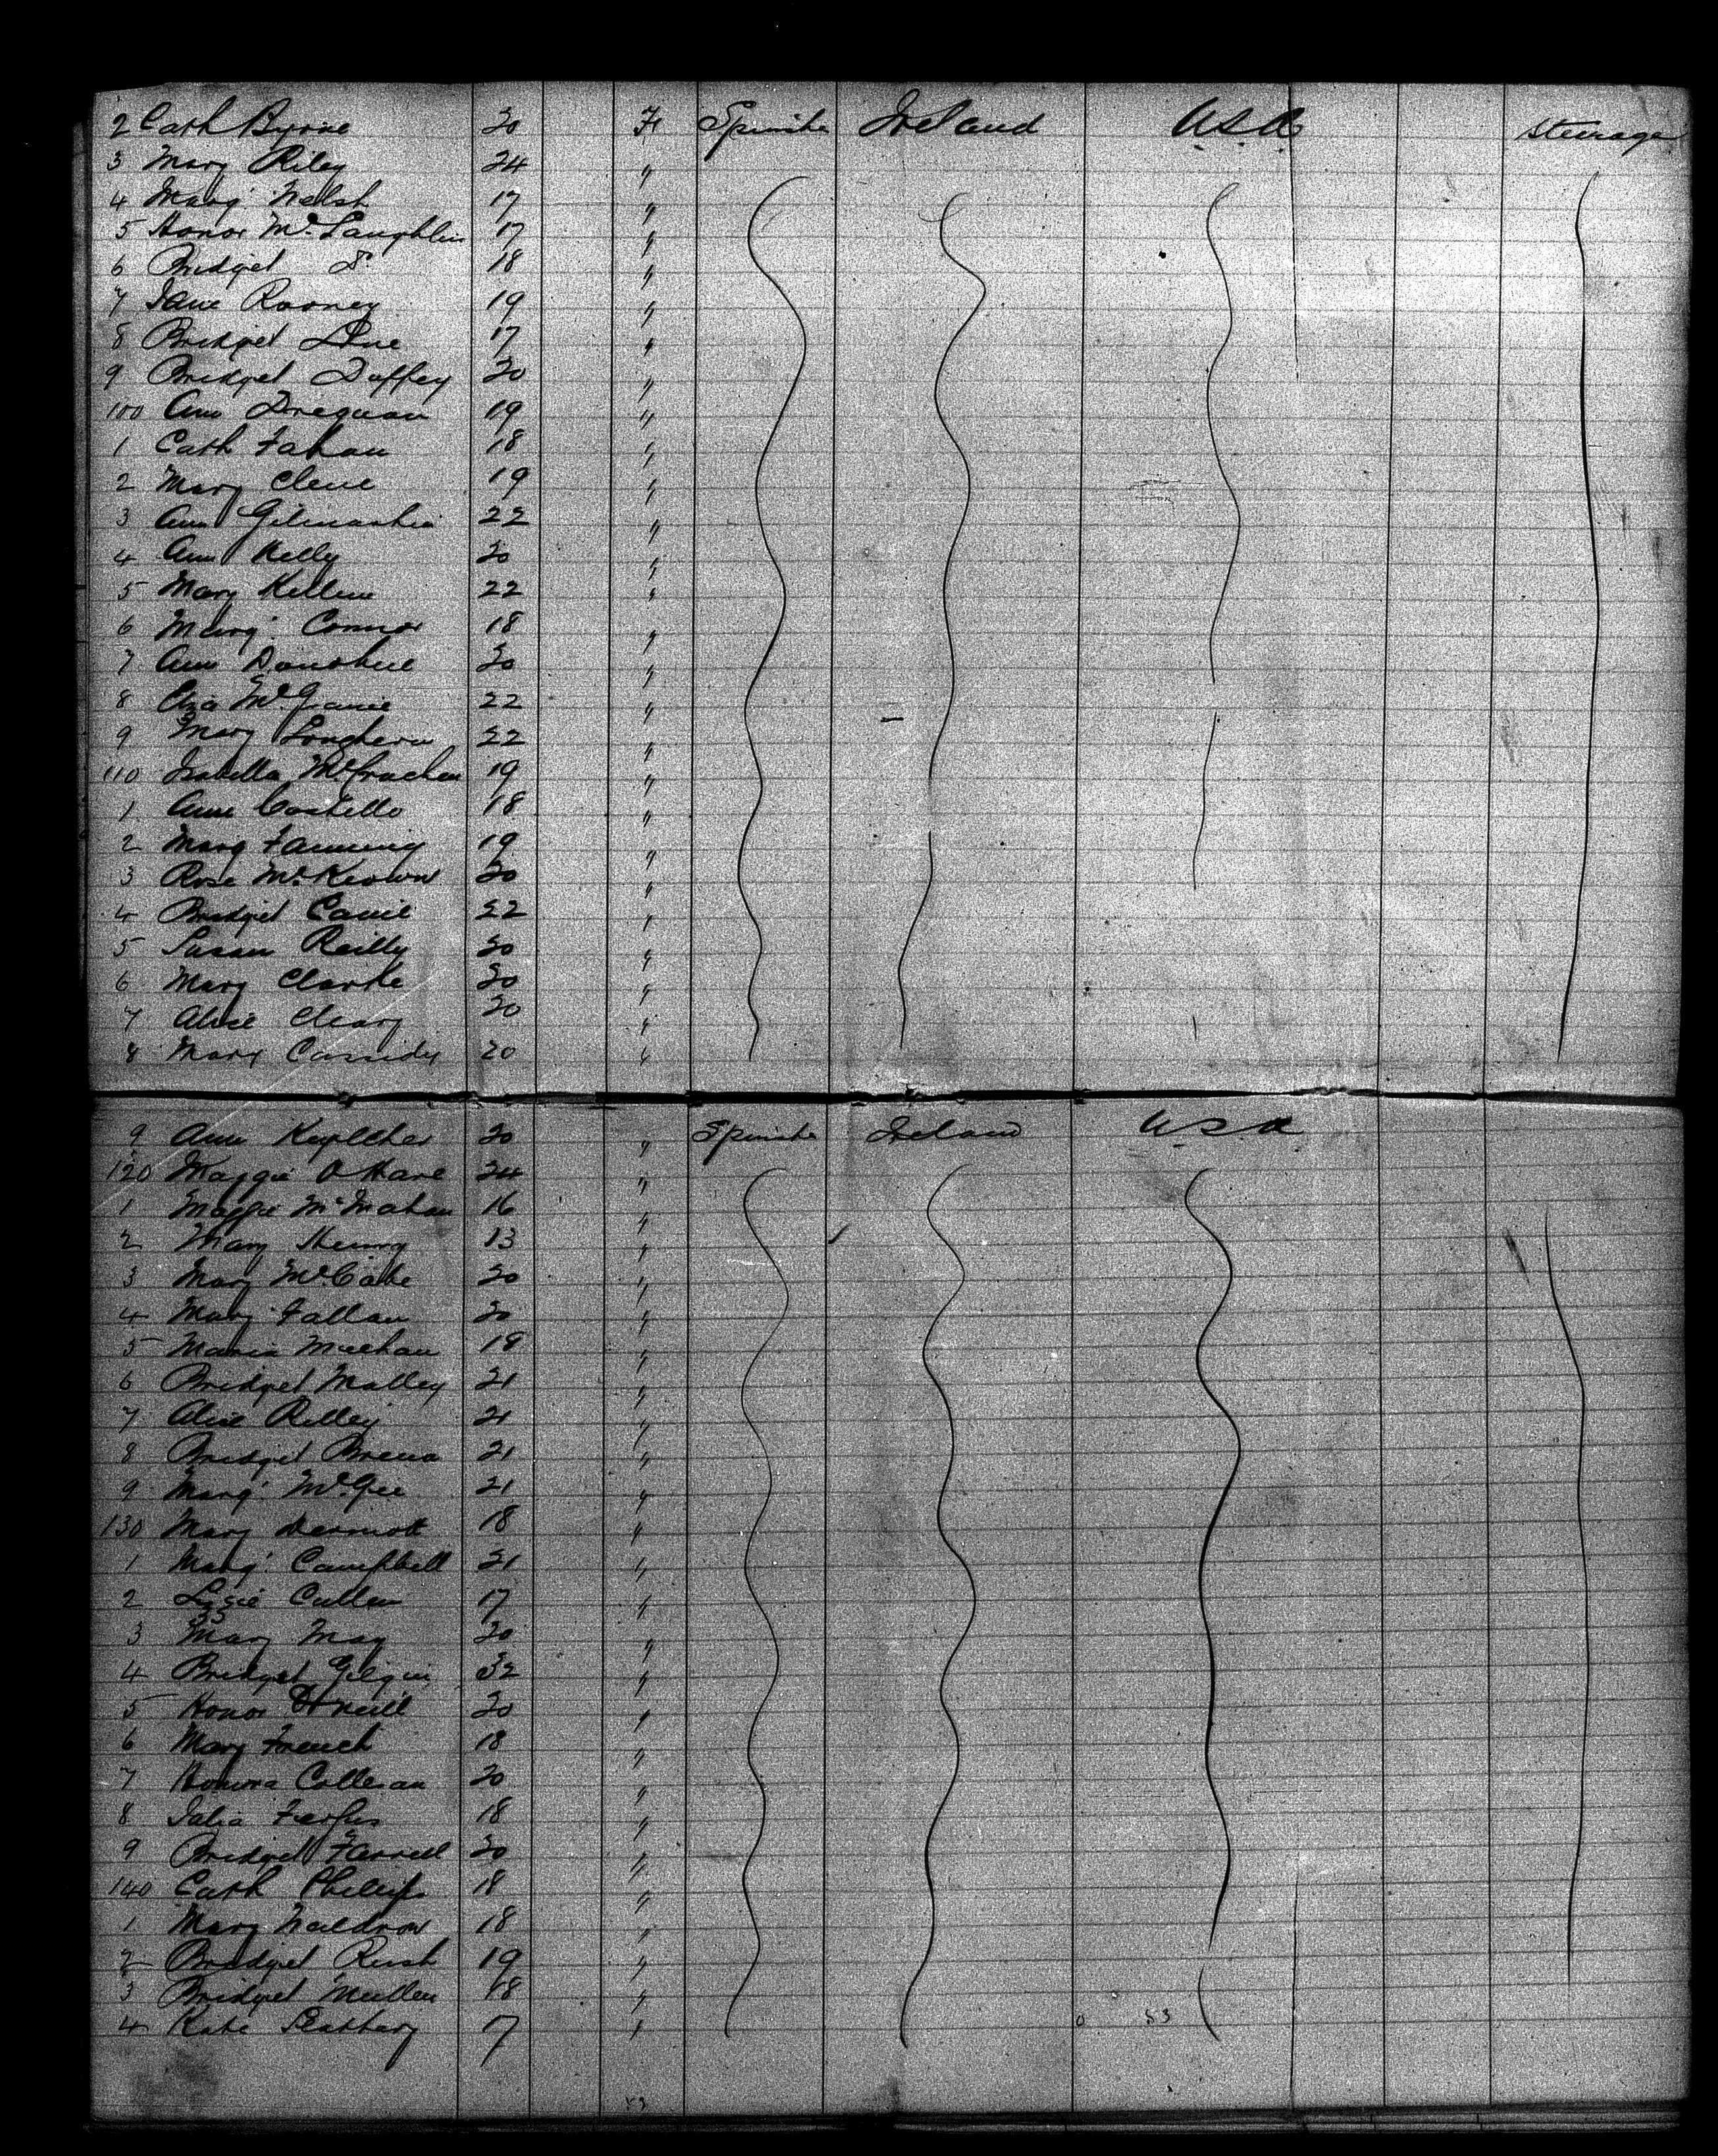 2 Cath Byrne 20 F Spinster Ireland U.S.A. Steerage
3 Mary Riley 24 "
4 Marg. Welsh 17 "
5 Honor McLaughlin 17 "
6 Bridget Do 18 "
7 Jane Rooney 19 "
8 Bridget 17 "
9 Bridget Duffey 20 "
100 Ann 19 "
1 Cath Fahan 18 "
2 Mary Clene 19 "
3 Ann 22 "
4 Ann Kelly 20 "
5 Mary 22 "
6 Marg. Connor 18 "
7 Ann Donohue 20 "
8 Eliza 22 "
9 Mary 22 "
110 Isabella McCrachen 19 "
1 Ann Costello 18 "
2 Marg Fanning 19 "
3 Rose McKeown 20 "
4 Bridget 22 "
5 Susan Reilly 20 "
6 Mary Clarke 20 "
7 Alice Cleary 20 "
8 Mary Cassidy 20 "
9 Ann 20 " Spinster Ireland U.S.A.
120 Maggie O Hare 24 "
1 Maggie McMahan 16 "
2 Mary Henry 13 "
3 Mary McCabe 20 "
4 Mary Fallan 20 "
5 Maria Meehan 18 "
6 Bridget Malley 21 "
7 Alice Rilley 21 "
8 Bridget 21 "
9 Marg. McGee 21 "
130 Mary Dermott 18 "
1 Marg. Campbell 21 "
2 Lizzie Cullen 17 "
3 Mary May 20 "
4 Bridget 32 "
5 Honor O'Neill 20 "
6 Mary French 18 "
7 Honora Colleran 20 "
8 18 "
9 Bridget Farrell 20 "
140 Cath Phillips 18 "
1 Mary Waldron 18 "
2 Bridget Rush 19 "
3 Bridget Mullen 18 "
4 Kate 7 " 53
53